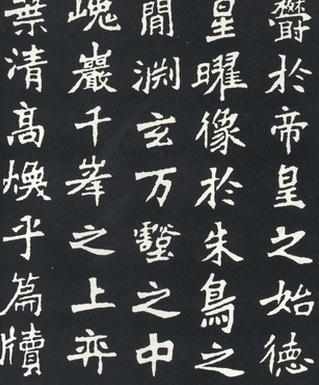 鬱於帝皇之始德
星曜像於朱鳥之
閒淵玄万壑之中
嵬巖千峯之上弈
葉清高煥乎篇牘